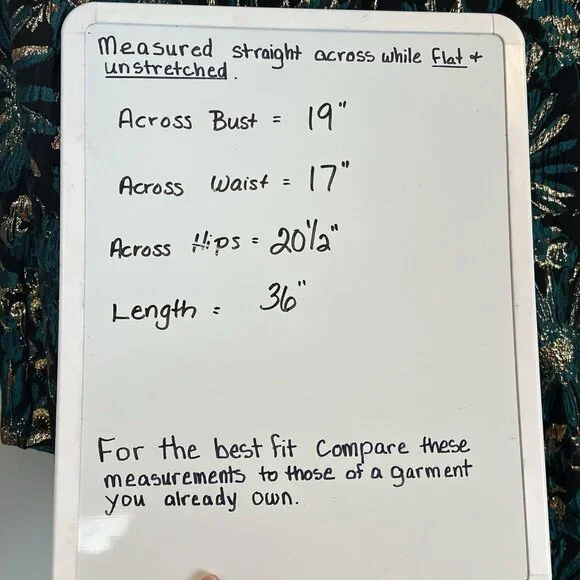 Measured straight across while flat +
unstretched.
Across Bust = 19"
Across Waist = 17"
Across Hips = 20 1/2"
Length = 36"
For the best fit compare these
measurements to those of a garment
you already own.